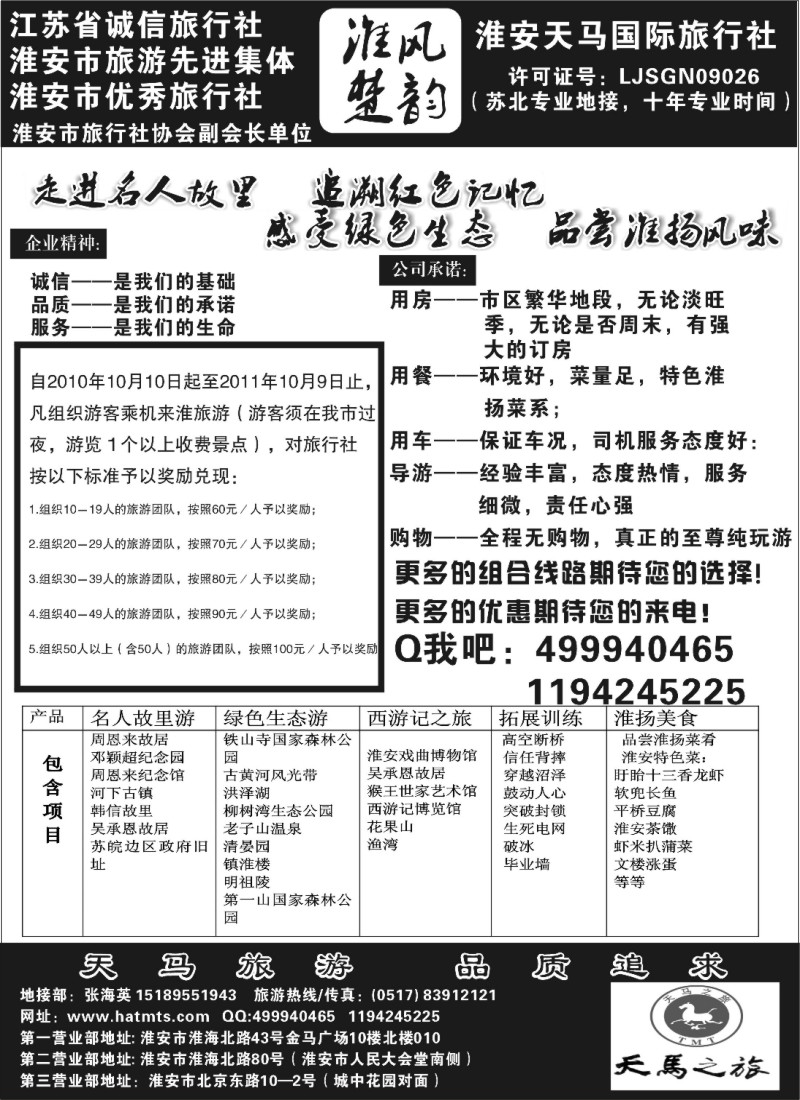 江苏省诚信旅行社
淮安市旅游先进集体
淮安市优秀旅行社
淮安市旅行社协会副会长单位
淮风
楚韵
淮安天马国际旅行社
许可证号：LJSGN09026
（苏北专业地接，十年专业时间）
走进名人故里 追溯红色记忆
感受绿色生态 品尝淮扬风味
企业精神:
诚信——是我们的基础
品质——是我们的承诺
服务——是我们的生命
自2010年10月10日起至2011年10月9日止，
凡组织游客乘机来淮旅游（游客须在我市过
夜，游览1个以上收费景点），对旅行社
按以下标准予以奖励兑现：
1.组织10—19人的旅游团队，按照60元／人予以奖励；
2.组织20—29人的旅游团队，按照70元／人予以奖励；
3.组织30—39人的旅游团队，按照80元／人予以奖励；
4.组织40—49人的旅游团队，按照90元／人予以奖励；
5.组织50人以上（含50人）的旅游团队，按照100元／人予以奖励
公司承诺:
用房——市区繁华地段，无论淡旺
季，无论是否周末，有强
大的订房
用餐——环境好，菜量足，特色淮
扬菜系；
用车——保证车况，司机服务态度好：
导游——经验丰富，态度热情，服务
细微，责任心强
购物——全程无购物，真正的至尊纯玩游
更多的组合线路期待您的选择！
更多的优惠期待您的来电！
Q我吧：499940465
1194245225
产品
包含项目
名人故里游
周恩来故居
邓颖超纪念园
周恩来纪念馆
河下古镇
韩信故里
吴承恩故居
苏皖边区政府旧
址
绿色生态游
铁山寺国家森林公
园
古黄河风光带
洪泽湖
柳树湾生态公园
老子山温泉
清晏园
镇淮楼
明祖陵
第一山国家森林公
园
西游记之旅
淮安戏曲博物馆
吴承恩故居
猴王世家艺术馆
西游记博览馆
花果山
渔湾
拓展训练
高空断桥
信任背摔
穿越沼泽
鼓动人心
突破封锁
生死电网
破冰
毕业墙
淮扬美食
品尝淮扬菜肴
淮安特色菜：
盱眙十三香龙虾
软兜长鱼
平桥豆腐
淮安茶馓
虾米扒蒲菜
文楼涨蛋
等等
天马旅游 品质追求
地接部：张海英 15189551943 旅游热线/传真：(0517) 83912121
网址：www.hatmts.com QQ:499940465 1194245225
第一营业部地址: 淮安市淮海北路43号金马广场10楼北楼010
第二营业部地址: 淮安市淮海北路80号（淮安市人民大会堂南侧）
第三营业部地址：淮安市北京东路10—2号（城中花园对面）
天马之旅
TMT
天馬之旅